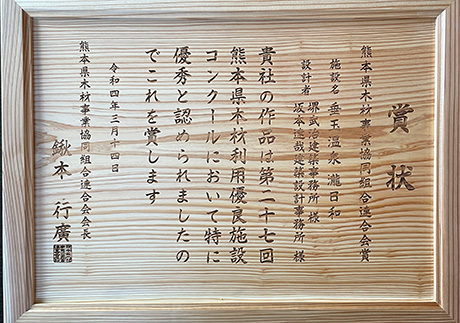 賞状
熊本県木材事業協同組合連合会賞
施設名 垂玉温泉 瀧日和
設計者 堺武治建築事務所 様
坂本達哉建築設計事務所 様
貴社の作品は第二十七回
熊本県木材利用優良施設
コンクールにおいて特に
優秀と認められましたの
でこれを賞します
令和四年三月十四日
熊本県木材事業協同組合連合会会長
鍬本行廣